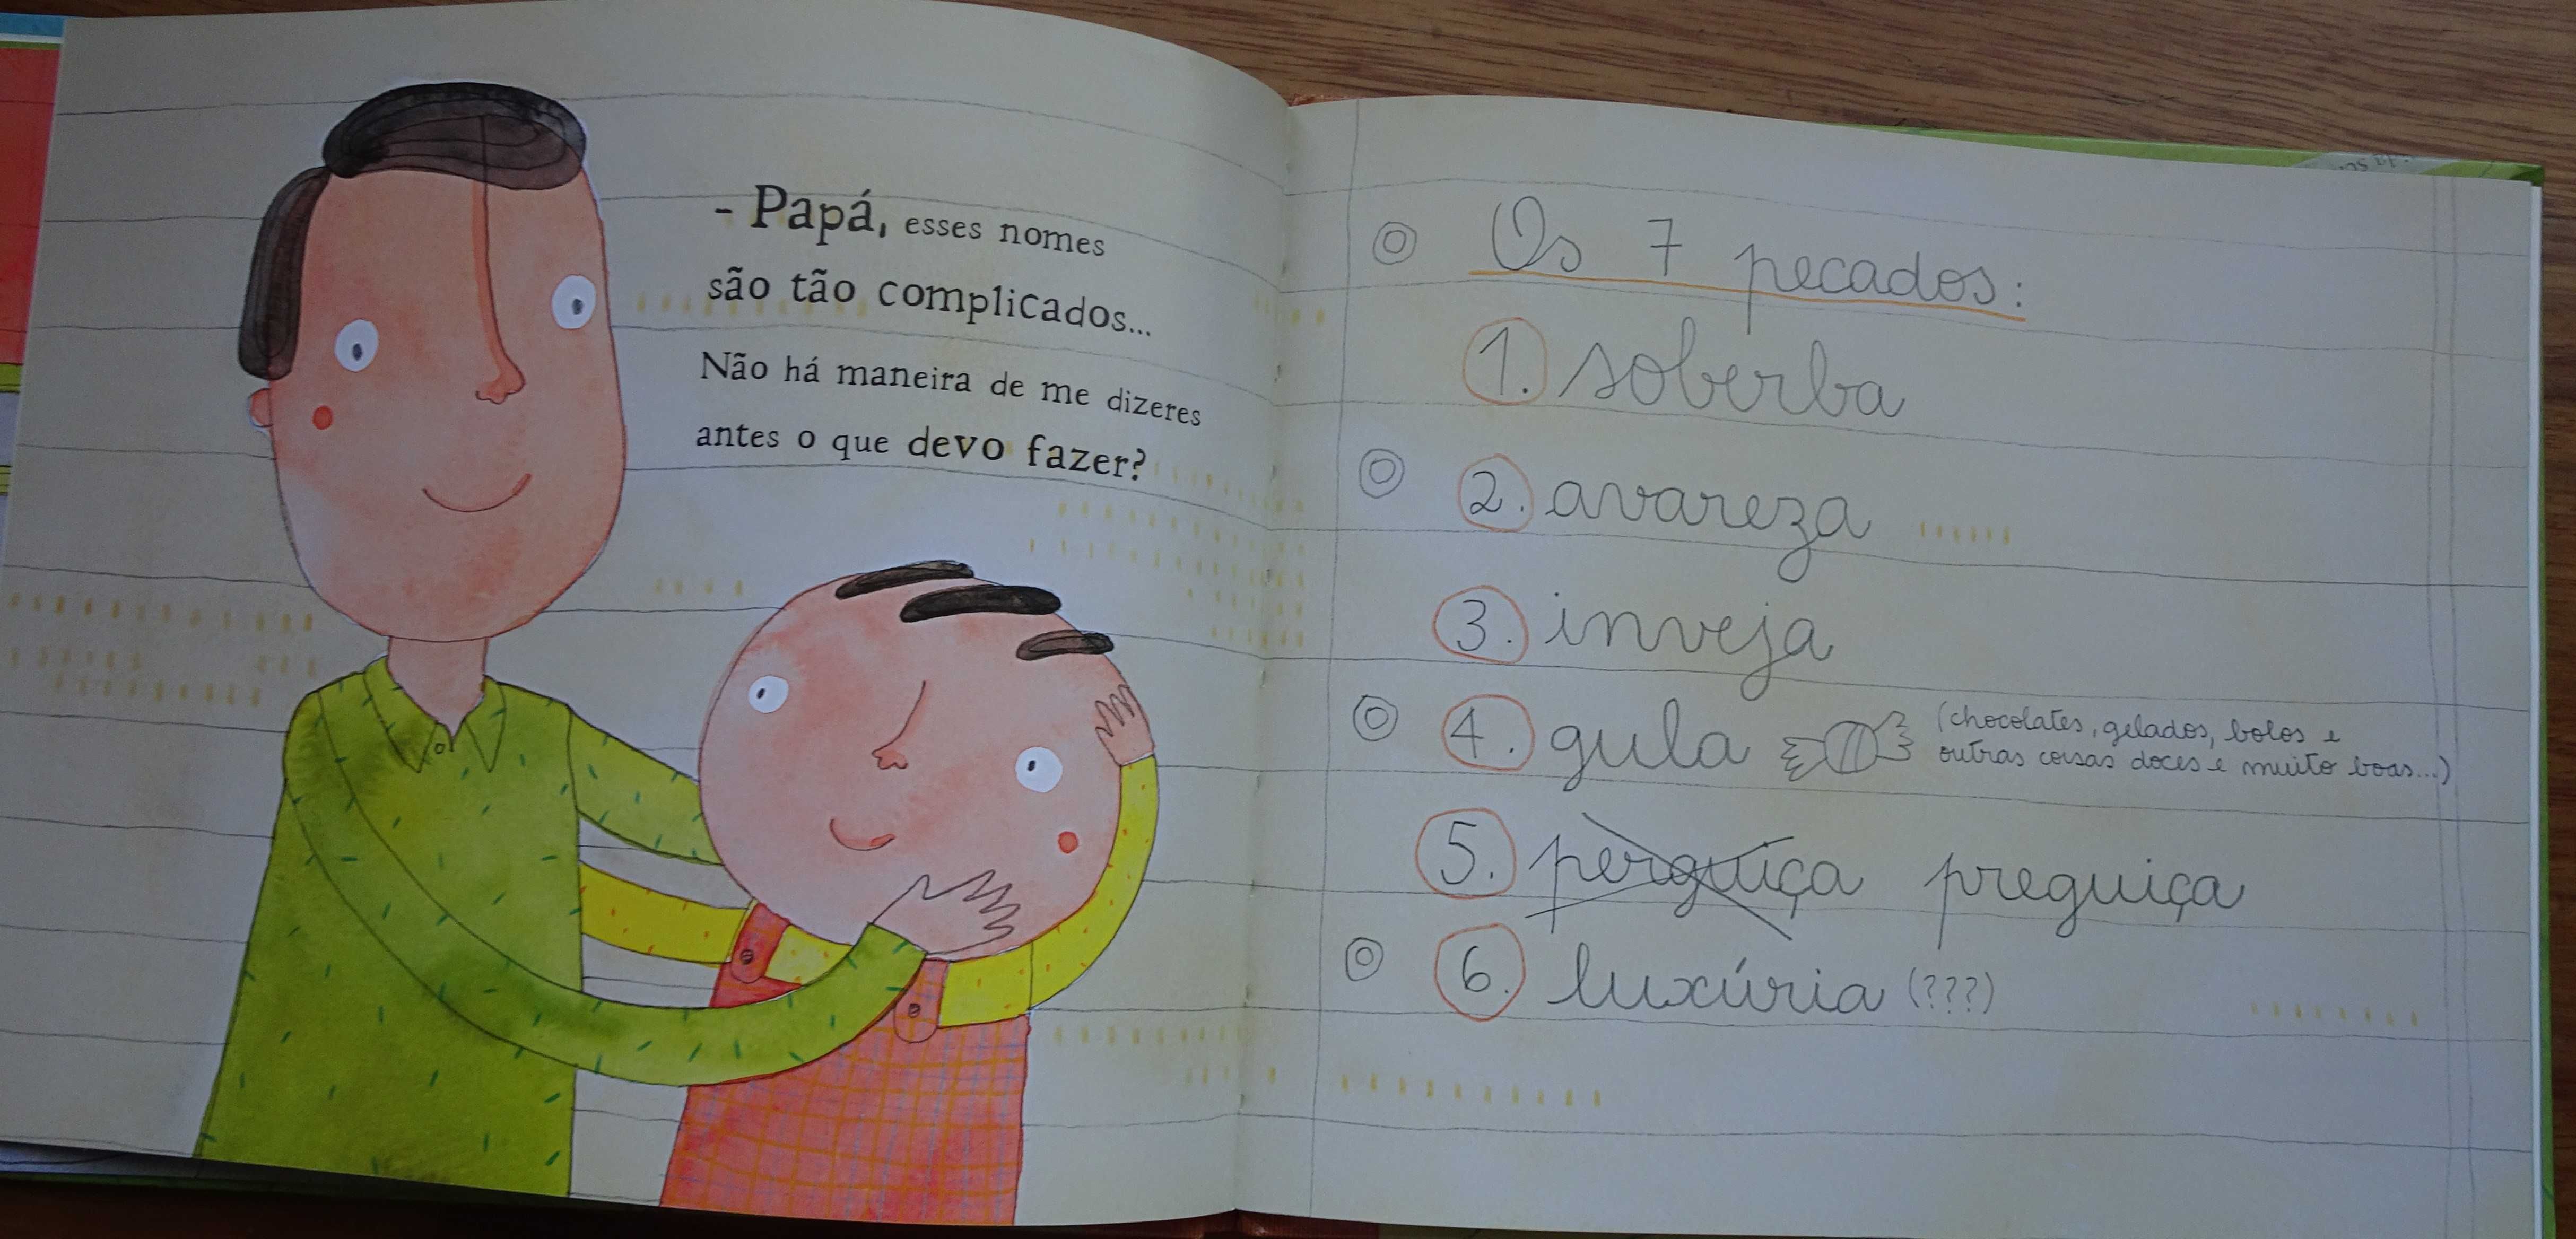 - Papá, esses nomes
são tão complicados...
Não há maneira de me dizeres
antes o que devo fazer?
Os 7 pecados:
1. soberba
2. avareza
3. inveja
4. gula (chocolates, gelados, bolos e
outras coisas doces e muito boas...)
5. perguiça preguiça
6. luxúria (???)